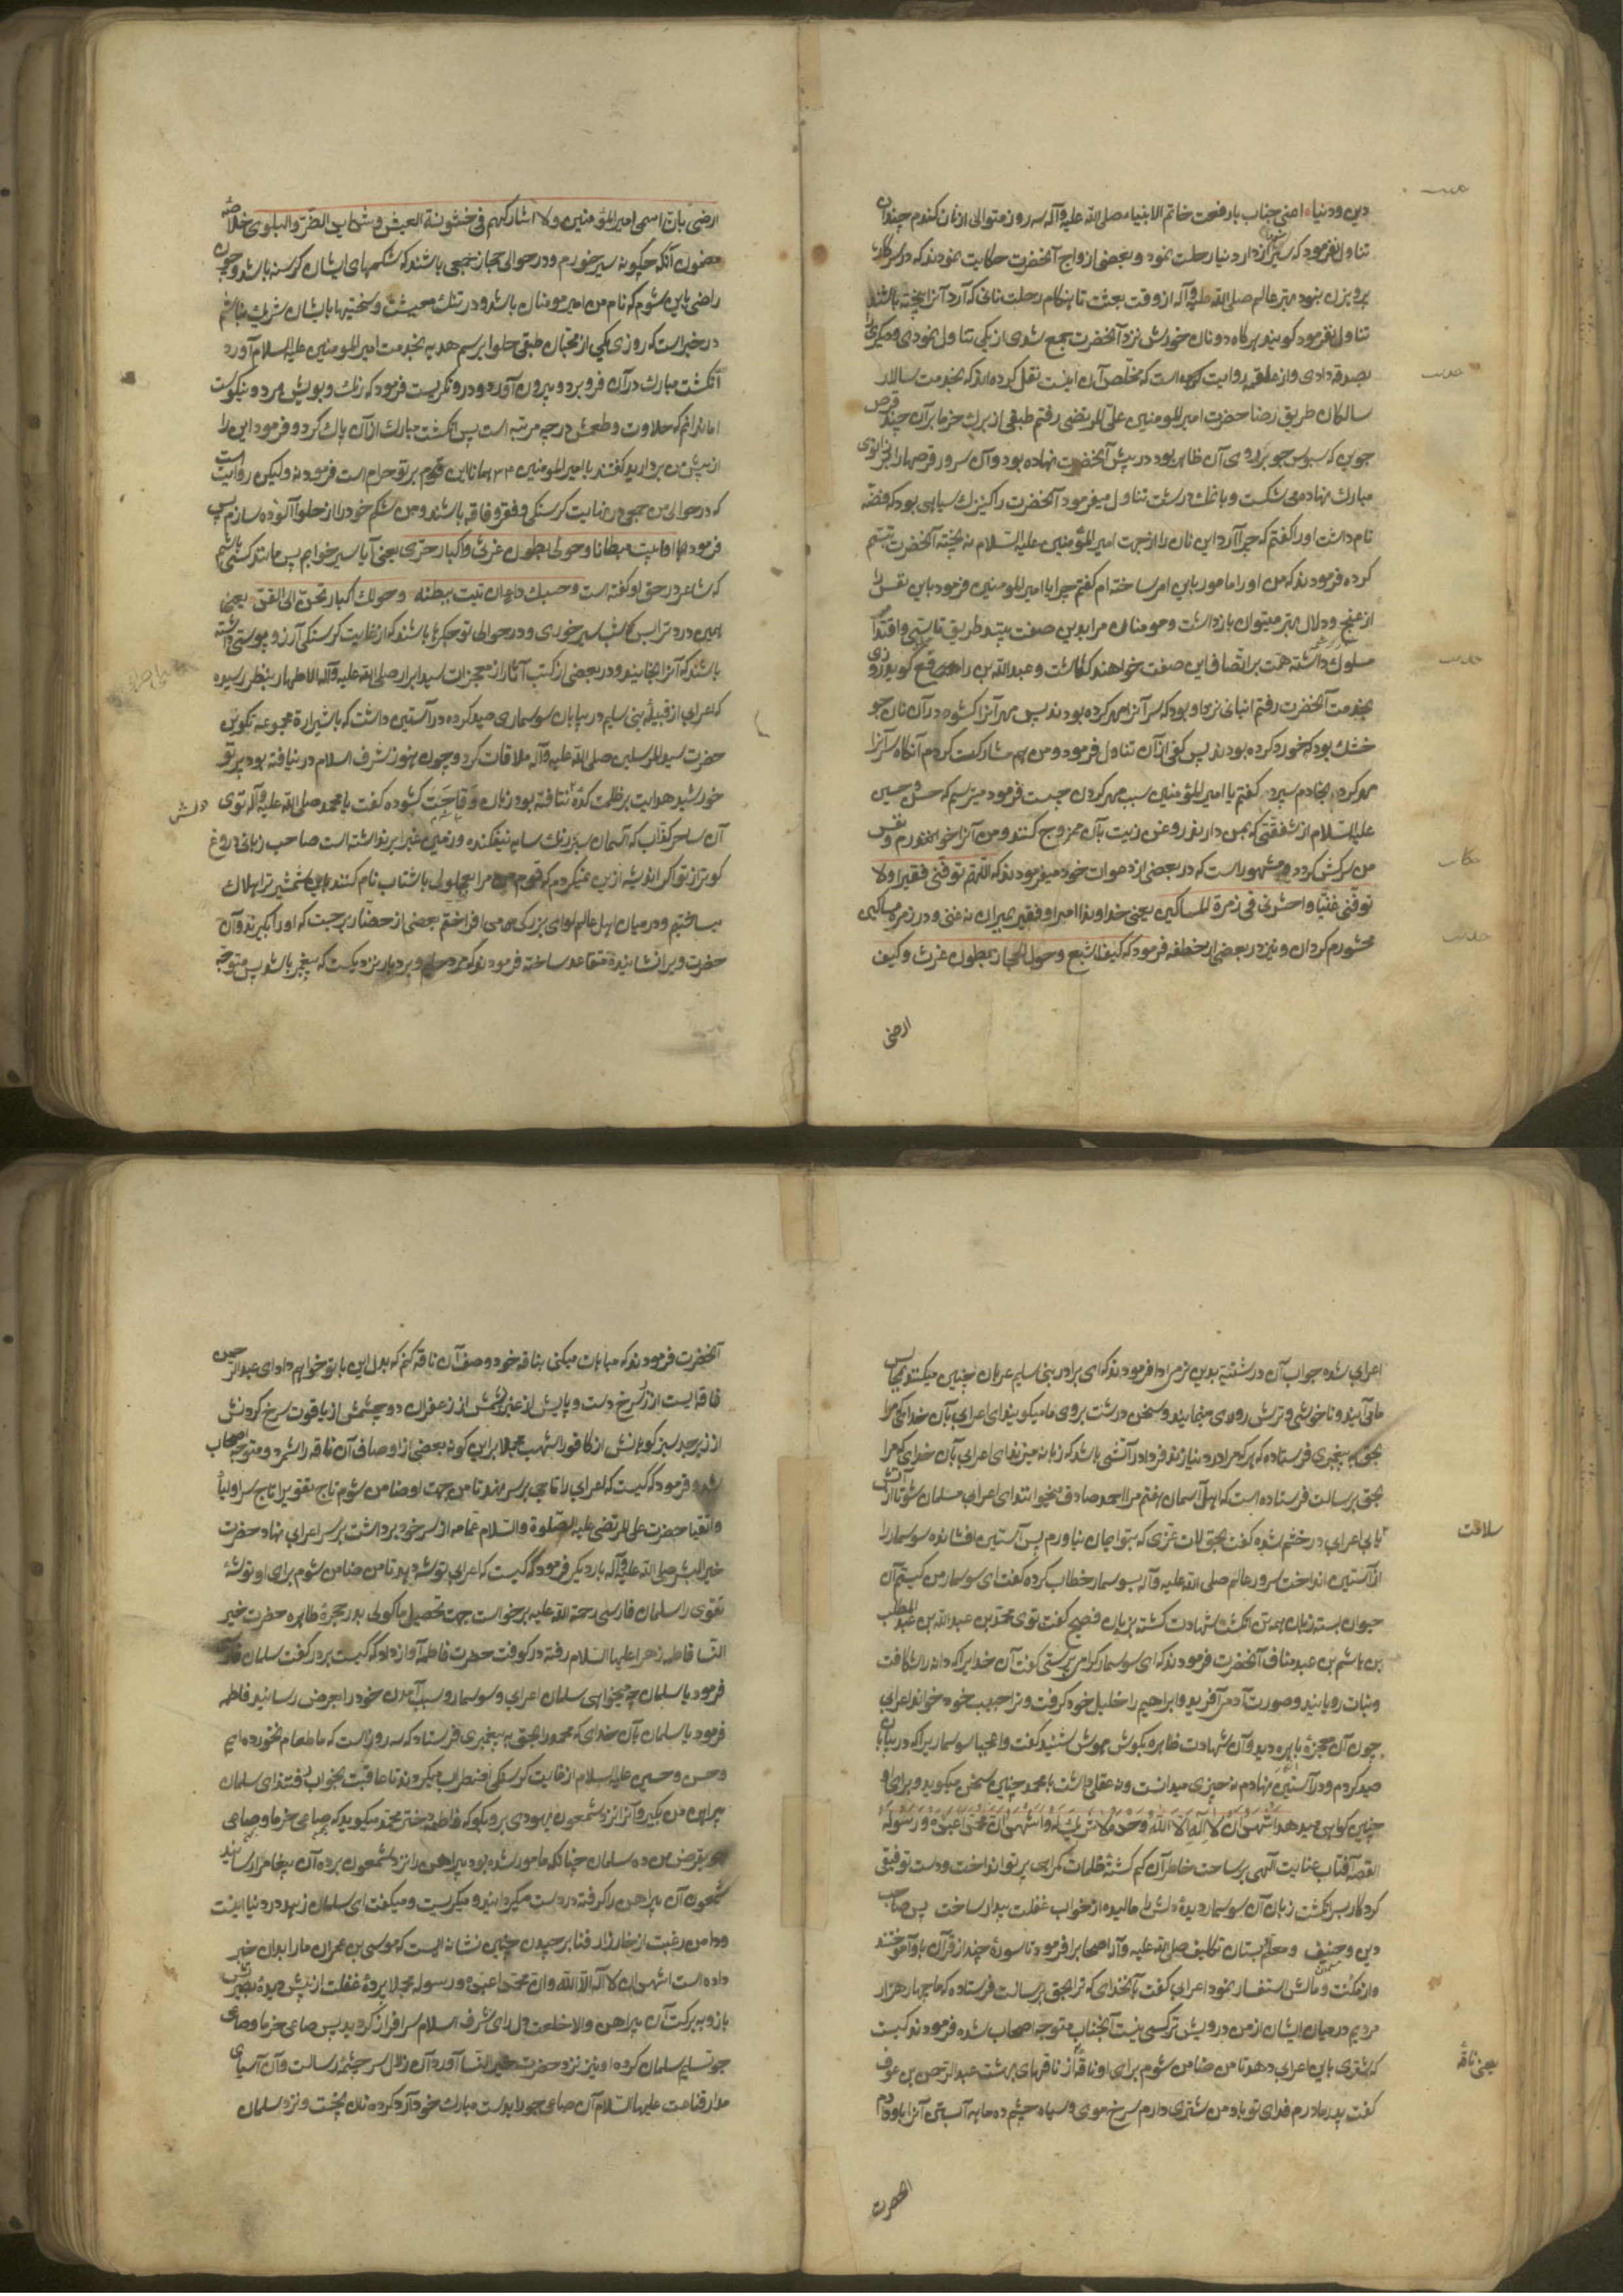 دین و دنیا اعنی جناب بارفعت خاتم الانبیا صلی الله علیه وآله سه روز متوالی از نان کندم چندان
تناول نفرمود که سیر شود از دار دنیا رحلت نمود و بعضی از ازواج آنحضرت حکایت نمودند که در سرکار
پرویزن نبود مهتر عالم صلی الله علیه وآله از وقت بعثت تا هنکام رحلت نانی که آرد آنرا بیخته باشند
تناول نفرمود کویند هرکاه دو نان خورش نزد آنحضرت جمع شدی از یکی تناول نمودی و دیکریرا
بصدقه دادی و از علقمه روایت است که مخلص آن اینست نقل کرده اند که بخدمت سالار
سالکان طریق رضا حضرت امیرالمومنین علی المرتضی رفتم طبقی از برک خرما بر آن چند قرص
جوین که سبوس جو بر روی آن ظاهر بود در پیش آنحضرت نهاده بود و آن سرور قرصها را بر زانوی
مبارک نهاده می شکست و با نمک درشت تناول میفرمود آنحضرت را کنیزک سیاهی بود که فضه
نام داشت او را کفتم که چرا آرد این نان را از جهت امیرالمؤمنین علیه السلام نه بیخته آنحضرت تبسم
کرده فرمودند که من او را مامور باین امر ساخته ام کفتم چرا یا امیرالمومنین فرمود باین نفس را
از غنج و دلال بهتر میتوان بازداشت و مومنان مرا بدین صفت بینند طریق تاسی و اقتدا
مسلوک داشته همت بر اتصاف این صفت خواهند کماشت و عبدالله بن رافع کوید روزی
بخدمت آنحضرت رفتم انبانی نزد او بود که سر آنرا مهر کرده بودند پس مهر آنرا کشود در آن نان جو
خشک بود که خورد کرده بودند پس کفی از آن تناول فرمود و من هم مشارکت کردم آنکاه سر آنرا
مهر کرد بخادم سپرد کفتم یا امیرالمؤمنین سبب مهر کردن چیست فرمود میترسم که حسن و حسین
علیه السلام از شفقتی که بمن دارند روغن زیت بآن ممزوج کنند و من آنرا خواهم خورم و نفس
من سرکش کردد و مشهور است که در بعضی از دعوات خود میفرمودند که اللهم توفنی فقیرا ولا
توفنی غنیا واحشرنی فی زمرة المساکین یعنی خداوندا مرا فقیر بمیران نه غنی و در زمره مساکین
محشورم کردان و نیز در بعضی از خطب فرمود که کیف اشبع وحول الحجاز بطون غرث وکیف
ارضی
ارضی بان اسمی امیرالمؤمنین ولا اشارکهم فی خشونة العیش وشداید الضر والبلوی خلاصه
مضمون آنکه چکونه سیر خورم و در حوالی حجاز جمعی باشند که شکمهای ایشان کرسنه باشد و چون
راضی باین شوم که نام من امیر مومنان باشد و در تنک معیشت و سختیها با ایشان شریک نباشم
در خبر است که روزی یکی از محبان طبقی حلوا برسم هدیه بخدمت امیرالمومنین علیه السلام آورد
انکشت مبارک در آن فرو برد و بیرون آورد و درو نکریست فرمود که رنک و بویش مرد و نیکوست
اما ندانم که حلاوت و طعمش در چه مرتبه است پس انکشت مبارک از آن پاک کرد و فرمود این را
از پیش من بردارید کفتند یا امیرالمومنین همانا این بر تو حرام است فرمود نه ولیکن روا نیست
که در حوالی من جمعی در نهایت کرسنکی و فقر و فاقه باشند و من شکم خود را از حلوا آلوده سازم پس
فرمود ابیت مبطانا وحولی بطون غرثی واکباد حری یعنی آیا سیر خوابم پس مانند کسی باشم
که شاعر در حق او کفته است وحسبک داء ان تبیت ببطنة وحولک اکباد تحن الی القد یعنی
همین درد ترا بس که شب سیر خوری و در حوالی تو جکرها باشند که از غایت کرسنکی آرزو پوستی داشته
باشند که آنرا بخایند و در بعضی از کتب آثار از معجزات سید ابرار صلی الله علیه وآله الاطهار بنظر رسیده
که اعرابی از قبیله بنی سلیم در بیابان سوسماری صید کرده در آستین داشت که باشیرازه مجموعه تکوین
حضرت سیدالمرسلین صلی الله علیه وآله ملاقات کرد و چون هنوز شرف اسلام در نیافته بود پرتو
خورشید هدایت بر ظلمت کده نتافته بود زبان وقاحت کشوده کفت یا محمد صلی الله علیه وآله توی
دلش
آن ساحر کذاب که آسمان سبزرنک سایه نیفکنده و زمین غبرا برنداشته است صاحب زبانی دروغ
کوتر از تو اکر اندیشه از این نمیکردم که قوم من مرا عجول باشتاب نام کنند باین شمشیر ترا هلاک
میساختم و در میان اهل عالم لوای بزرکی می افراختم بعضی از حضار برجست که او را بکیرند و آن
حضرت ویرا نشانیده متقاعد ساخته فرمودند که مرد حلیم و بردبار نزدیکست که پیغمبر باشد پس متوجه
اعرابی شده جواب آن درشتیها بدین نرمی ادا فرمودند که ای برادر بنی سلیم عربان چنین میکنند بمجالس
ما آمده و ناخوشی و ترش رویی مینمایند و سخن درشت بروی ما میکویند ای اعرابی بآن خدائی که مرا
بحق به پیغمبری فرستاده که هر که مرا در دنیا زند فردا در آتشی باشد که زبانه میزند ای اعرابی بآن خدای که مرا
بحق برسالت فرستاده است که اهل آسمان هفتم مرا احمد صادق میخوانند ای اعرابی مسلمان شو تا از آتش
سلامت
یابی اعرابی در خشم شده کفت بحق لات و عزی که بتو ایمان نیاورم پس آستین افشانده سوسمار را
از آستین انداخت سرور عالم صلی الله علیه وآله بسوسمار خطاب کرده کفت ای سوسمار من کیستم آن
حیوان بسته زبان همه تن انکشت شهادت کشته بزبان فصیح کفت توی محمد بن عبدالله بن عبدالمطلب
بن هاشم بن عبدمناف آنحضرت فرمودند که ای سوسمار کرا می پرستی کفت آن خدایرا که دانه را شکافت
و نبات رویانید و صورت آدم آفرید و ابراهیم را خلیل خود کرفت و ترا حبیب خود خواند اعرابی
چون آن معجزه باهره دید و آن شهادت ظاهر و بکوش هوش شنید کفت واعجبا سوسماریرا که در بیابان
صید کردم و در آستین نهادم نه چیزی میدانست و نه عقلی داشت با محمد چنین سخن میکوید و برای او
چنین کواهی میدهد اشهد ان لا اله الا الله وحده لا شریک له واشهد ان محمدا عبده ورسوله
القصه آفتاب عنایت آلهی بر ساحت خاطر آن کم کشته ظلمات کمراهی پرتو انداخت و دست توفیق
کردکار بسر انکشت زبان آن سوسمار دیده دلش را مالیده از خواب غفلت بیدار ساخت پس صاحب
دین حنیف و معلم دبستان تکالیف صلی الله علیه وآله اصحاب را فرمود تا سوره چند از قرآن باو آموختند
و از مکنت و مالش استفسار نمود اعرابی کفت بآنخدای که ترا بحق برسالت فرستاده که ما چهار هزار
مردیم در میان ایشان از من درویش ترکسی نیست آنجناب متوجه اصحاب شده فرمودند کیست
که شتری باین اعرابی دهد تا من ضامن شوم برای او ناقه از ناقهای بهشت عبدالرحمن بن عوف
یعنی ناقه
کفت پدر و مادرم فدای تو باد من شتری دارم سرخ موی و سیاه چشم ده ماهه آبستن آنرا باو دادم
آنحضرت
آنحضرت فرمودند که مباهات میکنی بناقه خود وصف آن ناقه کنم که بدل این با تو خواهم داد ای عبدالرحمن
ناقه ایست از زر سرخ دست و پایش از عنبر پشمش از زعفران دو چشمش از یاقوت سرخ کردنش
از زبرجد سبز کوهانش از کافور اشهب مجملا براین کونه بعضی از اوصاف آن ناقه را شمرد و متوجه اصحاب
شد و فرمود که کیست که اعرابی را تاجی بر سر نهد تا من بجهت او ضامن شوم تاج تقوی را تاج سر اولیا
و اتقیا حضرت علی المرتضی علیه الصلوة والسلام عمامه از سر خود برداشت بر سر اعرابی نهاد حضرت
خیرالبشر صلی الله علیه وآله بار دیکر فرمود که کیست که اعرابی را توشه دهد تا من ضامن شوم برای او توشه
تقوی را سلمان فارسی رحمة الله علیه برخواست جهت تحصیل ماکولی بدر حجره طاهره حضرت خیر
النسا فاطمه زهرا علیها السلام رفته در کوفت حضرت فاطمه آواز داد که کیست بر در کفت سلمان
فرمود یا سلمان چه میخواهی سلمان اعرابی و سوسمار و سبب آمدن خود را بعرض رسانید فاطمه
فرمود یا سلمان بآن خدای که محمد را بحق به پیغمبری فرستاد که سه روز است که ما طعام نخورده ایم
و حسن و حسین علیه السلام از غایت کرسنکی اضطراب میکردند تا عاقبت بخواب رفتند ای سلمان
پیراهن من بکیر و آنرا نزد شمعون یهودی بر و بکو که فاطمه دختر محمد میکوید که صاعی خرما و صاعی
جو بقرض من ده سلمان چنانکه مامور شده بود پیراهن را نزد شمعون برده آن پیغام را رسانید
شمعون آن پیراهن را کرفته در دست میکردانید و میکریست و میکفت ای سلمان زهد در دنیا اینست
و دامن رغبت از خارزار فنا برچیدن چنین نشانه ایست که موسی بن عمران ما را بدان خبر
داده است اشهد ان لا اله الا الله وان محمدا عبده ورسوله مجملا پرده غفلت از پیش دیده بصیرتش
باز و به برکت آن پیراهن والا خلعت دل رای شرف اسلام سرافراز کردید پس صاعی خرما و صاعی
جو تسلیم سلمان کرده او نیز نزد حضرت خیرالنسا آورد آن زلال سرچشمه رسالت و آن آسیای
مدار قناعت علیها السلام آن صاعی جو را بدست مبارک خود آرد کرده نان پخت و نزد سلمان